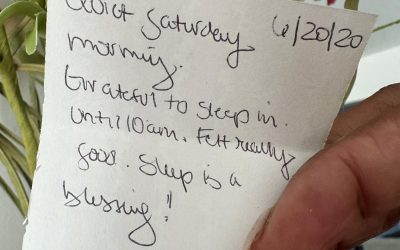 Quiet Saturday 6/20/20
morning.
Grateful to sleep in.
Until 10am. Felt really
good. Sleep is a
blessing!